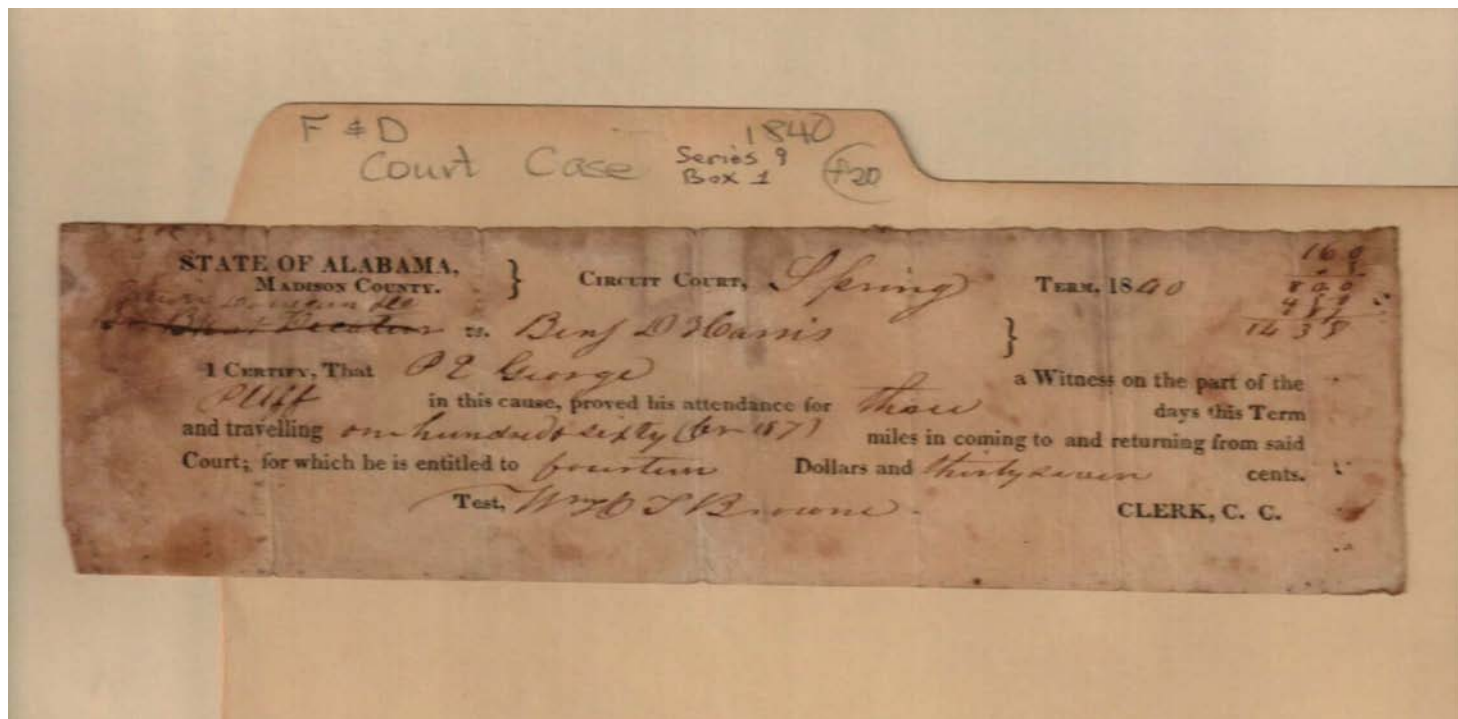 F & D 1840
Court Case Series 9
Box 1 f20
STATE OF ALABAMA, } CIRCUIT COURT, Spring TERM, 1840
MADISON COUNTY.
160
800
1438
vs. Benj D Harris }
I CERTIFY, That P E George a Witness on the part of the
Pltff in this cause, proved his attendance for days this Term
and travelling one hundred sixty miles in coming to and returning from said
Court; for which he is entitled to fourteen Dollars and thirty seven cents.
Test, Browne CLERK, C. C.